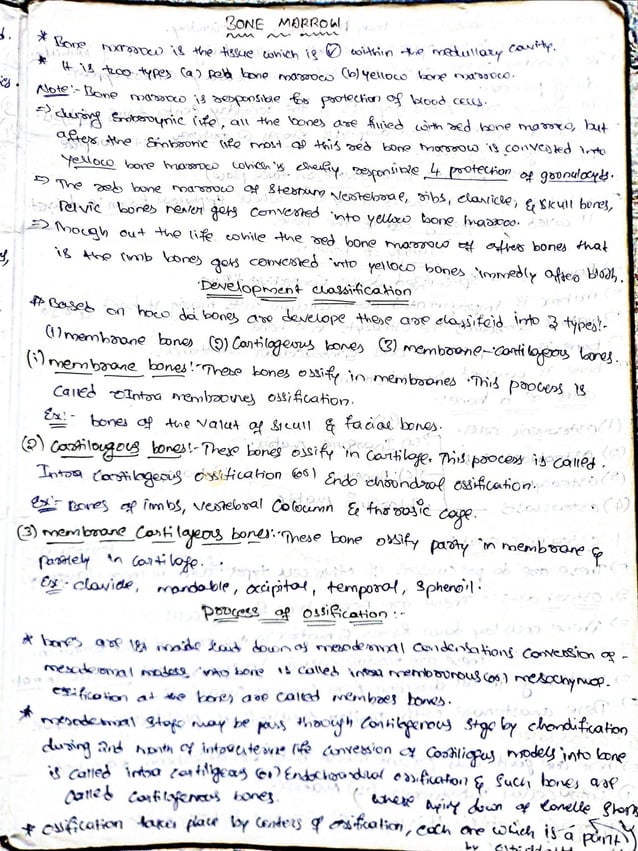 BONE MARROW
* Bone marrow is the tissue which is within the medullary cavity.
* It is two types (a) Red bone marrow (b) yellow bone marrow.
Note:- Bone marrow is responsible for protection of blood cells.
⇒ during Embroynic life, all the bones are filled with red bone marrow, but
after the Embronic life most of this red bone marrow is converted into
yellow bone marrow which is chiefly responsible 4 protection of granulocyts.
⇒ The red bone marrow of sternum vertebrae, ribs, clavicle, & skull bones,
Pelvic bones never gets converted into yellow bone marrow.
⇒ Though out the life while the red bone marrow of after bones that
is the limb bones gets converted into yellow bones immedly after birth.
Development classification
* Based on how bones are develope these are classifeid into 3 types:-
(1) membrane bones (2) Cartilageous bones (3) membrane-cartilageous bones.
(1) membrane bones:- These bones ossify in membranes. This process is
called Intra ossification.
Ex:- bones of the valut of skull & facial bones.
(2) bones:- These bones ossify in cartilage. This process is called
Intra ossification (or) Endo chrondral ossification.
Ex:- Bones of limbs, vertebral & cage.
(3) membrane Cartilageous bones:- These bone ossify party in membrane &
partely in cartilage.
Ex:- clavicle, mandable, occipital, temporal, sphenoil.
Process of Ossification:-
* bones are 1st down as mesodermal condensations conversion of -
into bone is called intra (or)
at the bones are called bones.
* mesodermal stage may be pass through stge by chondification
during 2nd month of life conversion of models into bone
is called intra (or) ossification & such bones are
called bones. (where down of
* ossification takes place by centers of ossification, each one which is a point)
by